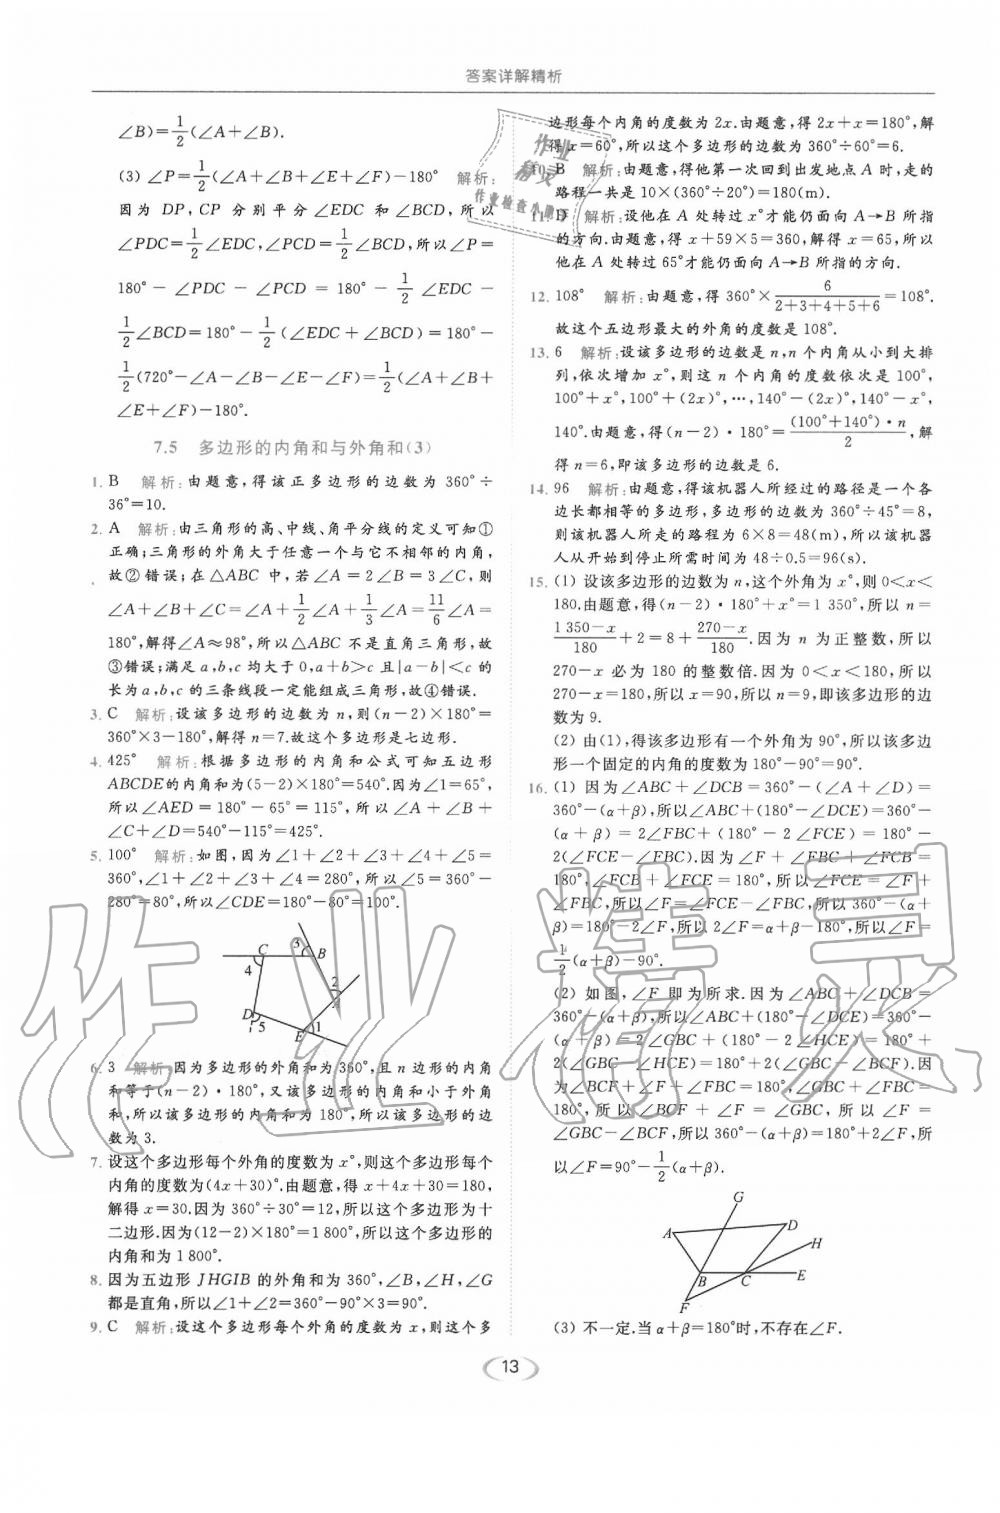 答案详解精析
∠B)=1/2(∠A+∠B).
(3) ∠P=1/2(∠A+∠B+∠E+∠F)-180° 解析:
因为 DP,CP 分别平分∠EDC 和∠BCD,所以
∠PDC=1/2∠EDC,∠PCD=1/2∠BCD,所以∠P=
180°-∠PDC-∠PCD=180°-1/2∠EDC-
1/2∠BCD=180°-1/2(∠EDC+∠BCD)=180°-
1/2(720°-∠A-∠B-∠E-∠F)=1/2(∠A+∠B+
∠E+∠F)-180°.
7.5 多边形的内角和与外角和(3)
1. B 解析:由题意,得该正多边形的边数为 360°÷
36°=10.
2. A 解析:由三角形的高、中线、角平分线的定义可知①
正确;三角形的外角大于任意一个与它不相邻的内角,
故②错误;在△ABC 中,若∠A=2∠B=3∠C,则
∠A+∠B+∠C=∠A+1/2∠A+1/3∠A=11/6∠A=
180°,解得∠A≈98°,所以△ABC 不是直角三角形,故
③错误;满足 a,b,c 均大于 0,a+b>c 且|a-b|<c 的
长为 a,b,c 的三条线段一定能组成三角形,故④错误.
3. C 解析:设该多边形的边数为 n,则(n-2)×180°=
360°×3-180°,解得 n=7.故这个多边形是七边形.
4. 425° 解析:根据多边形的内角和公式可知五边形
ABCDE的内角和为(5-2)×180°=540°.因为∠1=65°,
所以∠AED=180°-65°=115°,所以∠A+∠B+
∠C+∠D=540°-115°=425°.
5. 100° 解析:如图,因为∠1+∠2+∠3+∠4+∠5=
360°,∠1+∠2+∠3+∠4=280°,所以∠5=360°-
280°=80°,所以∠CDE=180°-80°=100°.
C 3 B
4
2
A
D 5 E 1
6. 3 解析:因为多边形的外角和为360°,且 n 边形的内角
和等于(n-2)·180°,又该多边形的内角和小于外角
和,所以该多边形的内角和为 180°,所以该多边形的边
数为 3.
7. 设这个多边形每个外角的度数为 x°,则这个多边形每个
内角的度数为(4x+30)°.由题意,得 x+4x+30=180,
解得 x=30.因为 360°÷30°=12,所以这个多边形为十
二边形.因为(12-2)×180°=1 800°,所以这个多边形的
内角和为 1 800°.
8. 因为五边形 JHGIB 的外角和为 360°,∠B,∠H,∠G
都是直角,所以∠1+∠2=360°-90°×3=90°.
9. C 解析:设这个多边形每个外角的度数为 x,则这个多
边形每个内角的度数为 2x.由题意,得 2x+x=180°,解
得 x=60°,所以这个多边形的边数为 360°÷60°=6.
10. B 解析:由题意,得他第一次回到出发地点 A 时,走的
路程一共是 10×(360°÷20°)=180(m).
11. D 解析:设他在 A 处转过 x°才能仍面向 A→B 所指
的方向.由题意,得 x+59×5=360,解得 x=65,所以
他在 A 处转过 65°才能仍面向 A→B 所指的方向.
12. 108° 解析:由题意,得 360°×6/(2+3+4+5+6)=108°.
故这个五边形最大的外角的度数是 108°.
13. 6 解析:设该多边形的边数是 n,n 个内角从小到大排
列,依次增加 x°,则这 n 个内角的度数依次是 100°,
100°+x°,100°+(2x)°,…,140°-(2x)°,140°-x°,
140°.由题意,得(n-2)·180°=(100°+140°)·n/2,解
得 n=6,即该多边形的边数是 6.
14. 96 解析:由题意,得该机器人所经过的路径是一个各
边长都相等的多边形,多边形的边数为 360°÷45°=8,
则该机器人所走的路程为 6×8=48(m),所以该机器
人从开始到停止所需时间为 48÷0.5=96(s).
15. (1) 设该多边形的边数为 n,这个外角为 x°,则 0<x<
180.由题意,得(n-2)·180°+x°=1 350°,所以 n=
(1 350-x)/180+2=8+(270-x)/180.因为 n 为正整数,所以
270-x 必为 180 的整数倍.因为 0<x<180,所以
270-x=180,所以 x=90,所以 n=9,即该多边形的边
数为 9.
(2) 由(1),得该多边形有一个外角为 90°,所以该多边
形一个固定的内角的度数为 180°-90°=90°.
16. (1) 因为∠ABC+∠DCB=360°-(∠A+∠D)=
360°-(α+β),所以∠ABC+(180°-∠DCE)=360°-
(α+β)=2∠FBC+(180°-2∠FCE)=180°-
2(∠FCE-∠FBC).因为∠F+∠FBC+∠FCB=
180°,∠FCB+∠FCE=180°,所以∠FCE=∠F+
∠FBC,所以∠F=∠FCE-∠FBC,所以 360°-(α+
β)=180°-2∠F,所以 2∠F=α+β-180°,所以∠F=
1/2(α+β)-90°.
(2) 如图,∠F 即为所求.因为∠ABC+∠DCB=
360°-(α+β),所以∠ABC+(180°-∠DCE)=360°-
(α+β)=2∠GBC+(180°-2∠HCE)=180°+
2(∠GBC-∠HCE)=180°+2(∠GBC-∠BCF).因
为∠BCF+∠F+∠FBC=180°,∠GBC+∠FBC=
180°,所以∠BCF+∠F=∠GBC,所以∠F=
∠GBC-∠BCF,所以 360°-(α+β)=180°+2∠F,所
以∠F=90°-1/2(α+β).
G
A D
H
B C E
F
(3) 不一定.当 α+β=180°时,不存在∠F.
13
作业
精灵
作业检查小助手
作业精灵